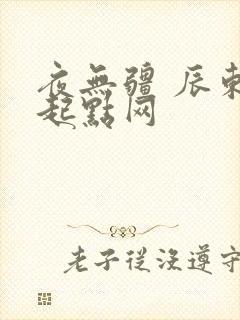 夜無疆 辰東
起點网
老子從沒遵守